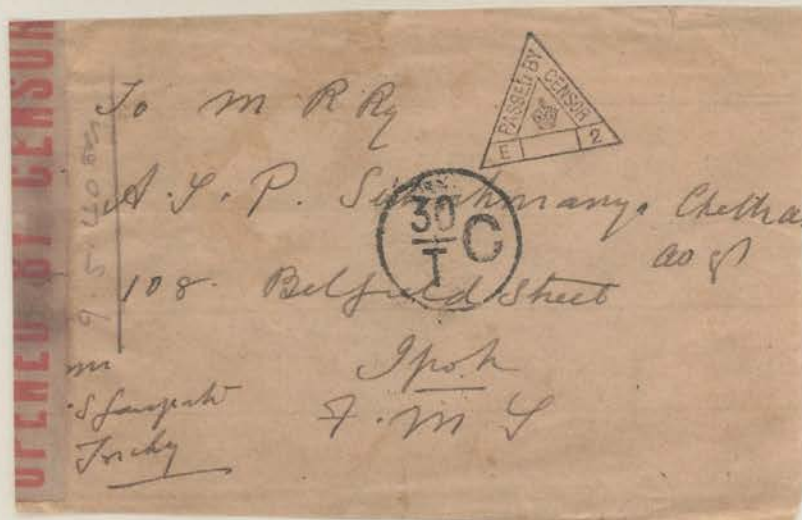 OPENED BY CENSOR
PASSED BY CENSOR
E 2
To M R Ry
A. S. P. Chettiar
30 C
T
108. Belfield Street
Ipoh
F. M. S
Trichy